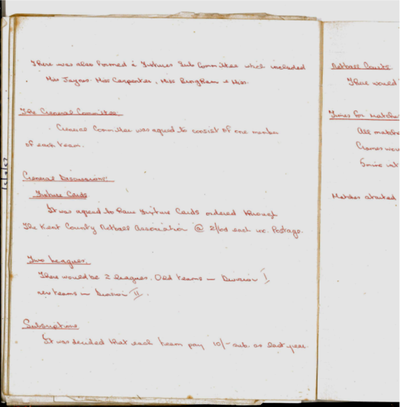 There was also formed a Fixtures Sub Committee which included
Mrs Jaguar. Miss Carpenter, Miss Bingham & Miss
The General Committee
General Committee was agreed to consist of one member
of each team.
General Discussion:
Fixture Cards
It was agreed to have Fixture Cards ordered through
The Kent County Netball Association @ each inc. Postage.
Two Leagues.
There would be 2 leagues. Old teams in Division I
new teams in Division II.
Subscriptions
It was decided that each team pay 10/- sub. as last year
Netball Courts
There would
Times for Matches
All matches
Games
Matches started